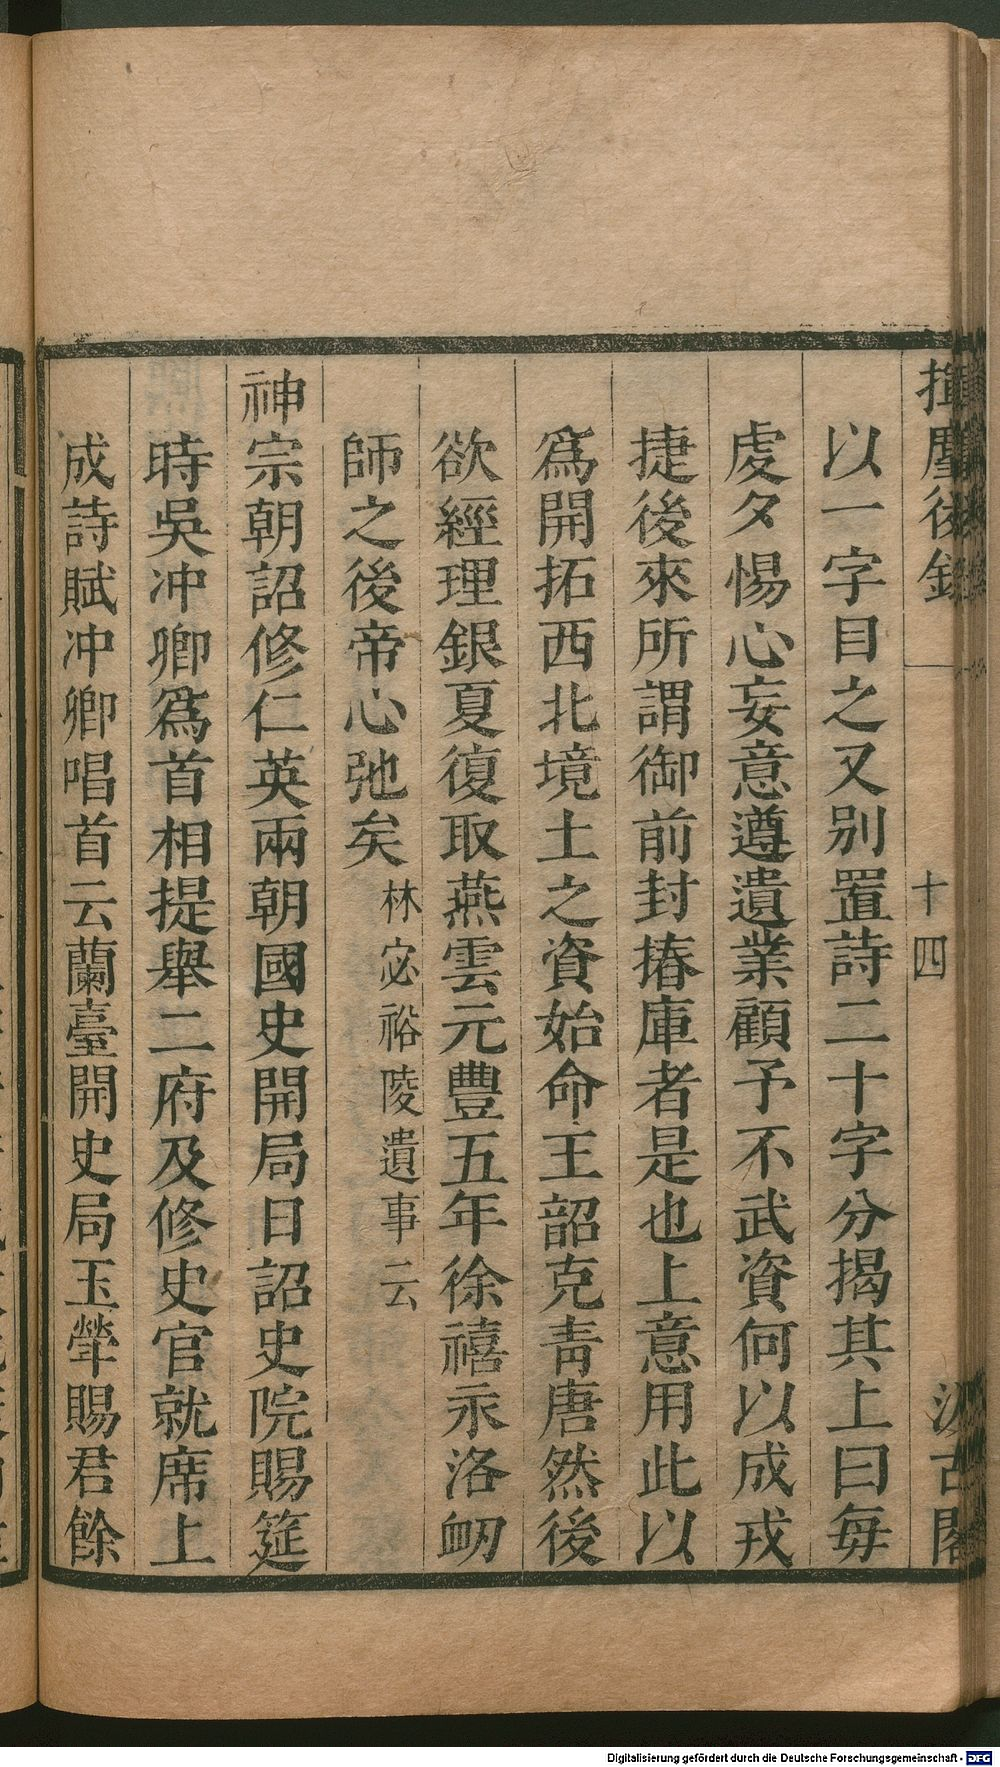 揮麈後錄
十四
汲古閣
以一字目之又别置詩二十字分揭其上曰每
虔夕惕心妄意遵遺業顧予不武資何以成戎
捷後來所謂御前封樁庫者是也上意用此以
爲開拓西北境土之資始命王韶克靑唐然後
欲經理銀夏復取燕雲元豐五年徐禧永洛衂
師之後帝心弛矣林宓裕陵遺事云
神宗朝詔修仁英兩朝國史開局日詔史院賜筵
時吳冲卿爲首相提舉二府及修史官就席上
成詩賦冲卿唱首云蘭臺開史局玉斝賜君餘
Digitalisierung gefördert durch die Deutsche Forschungsgemeinschaft - DFG